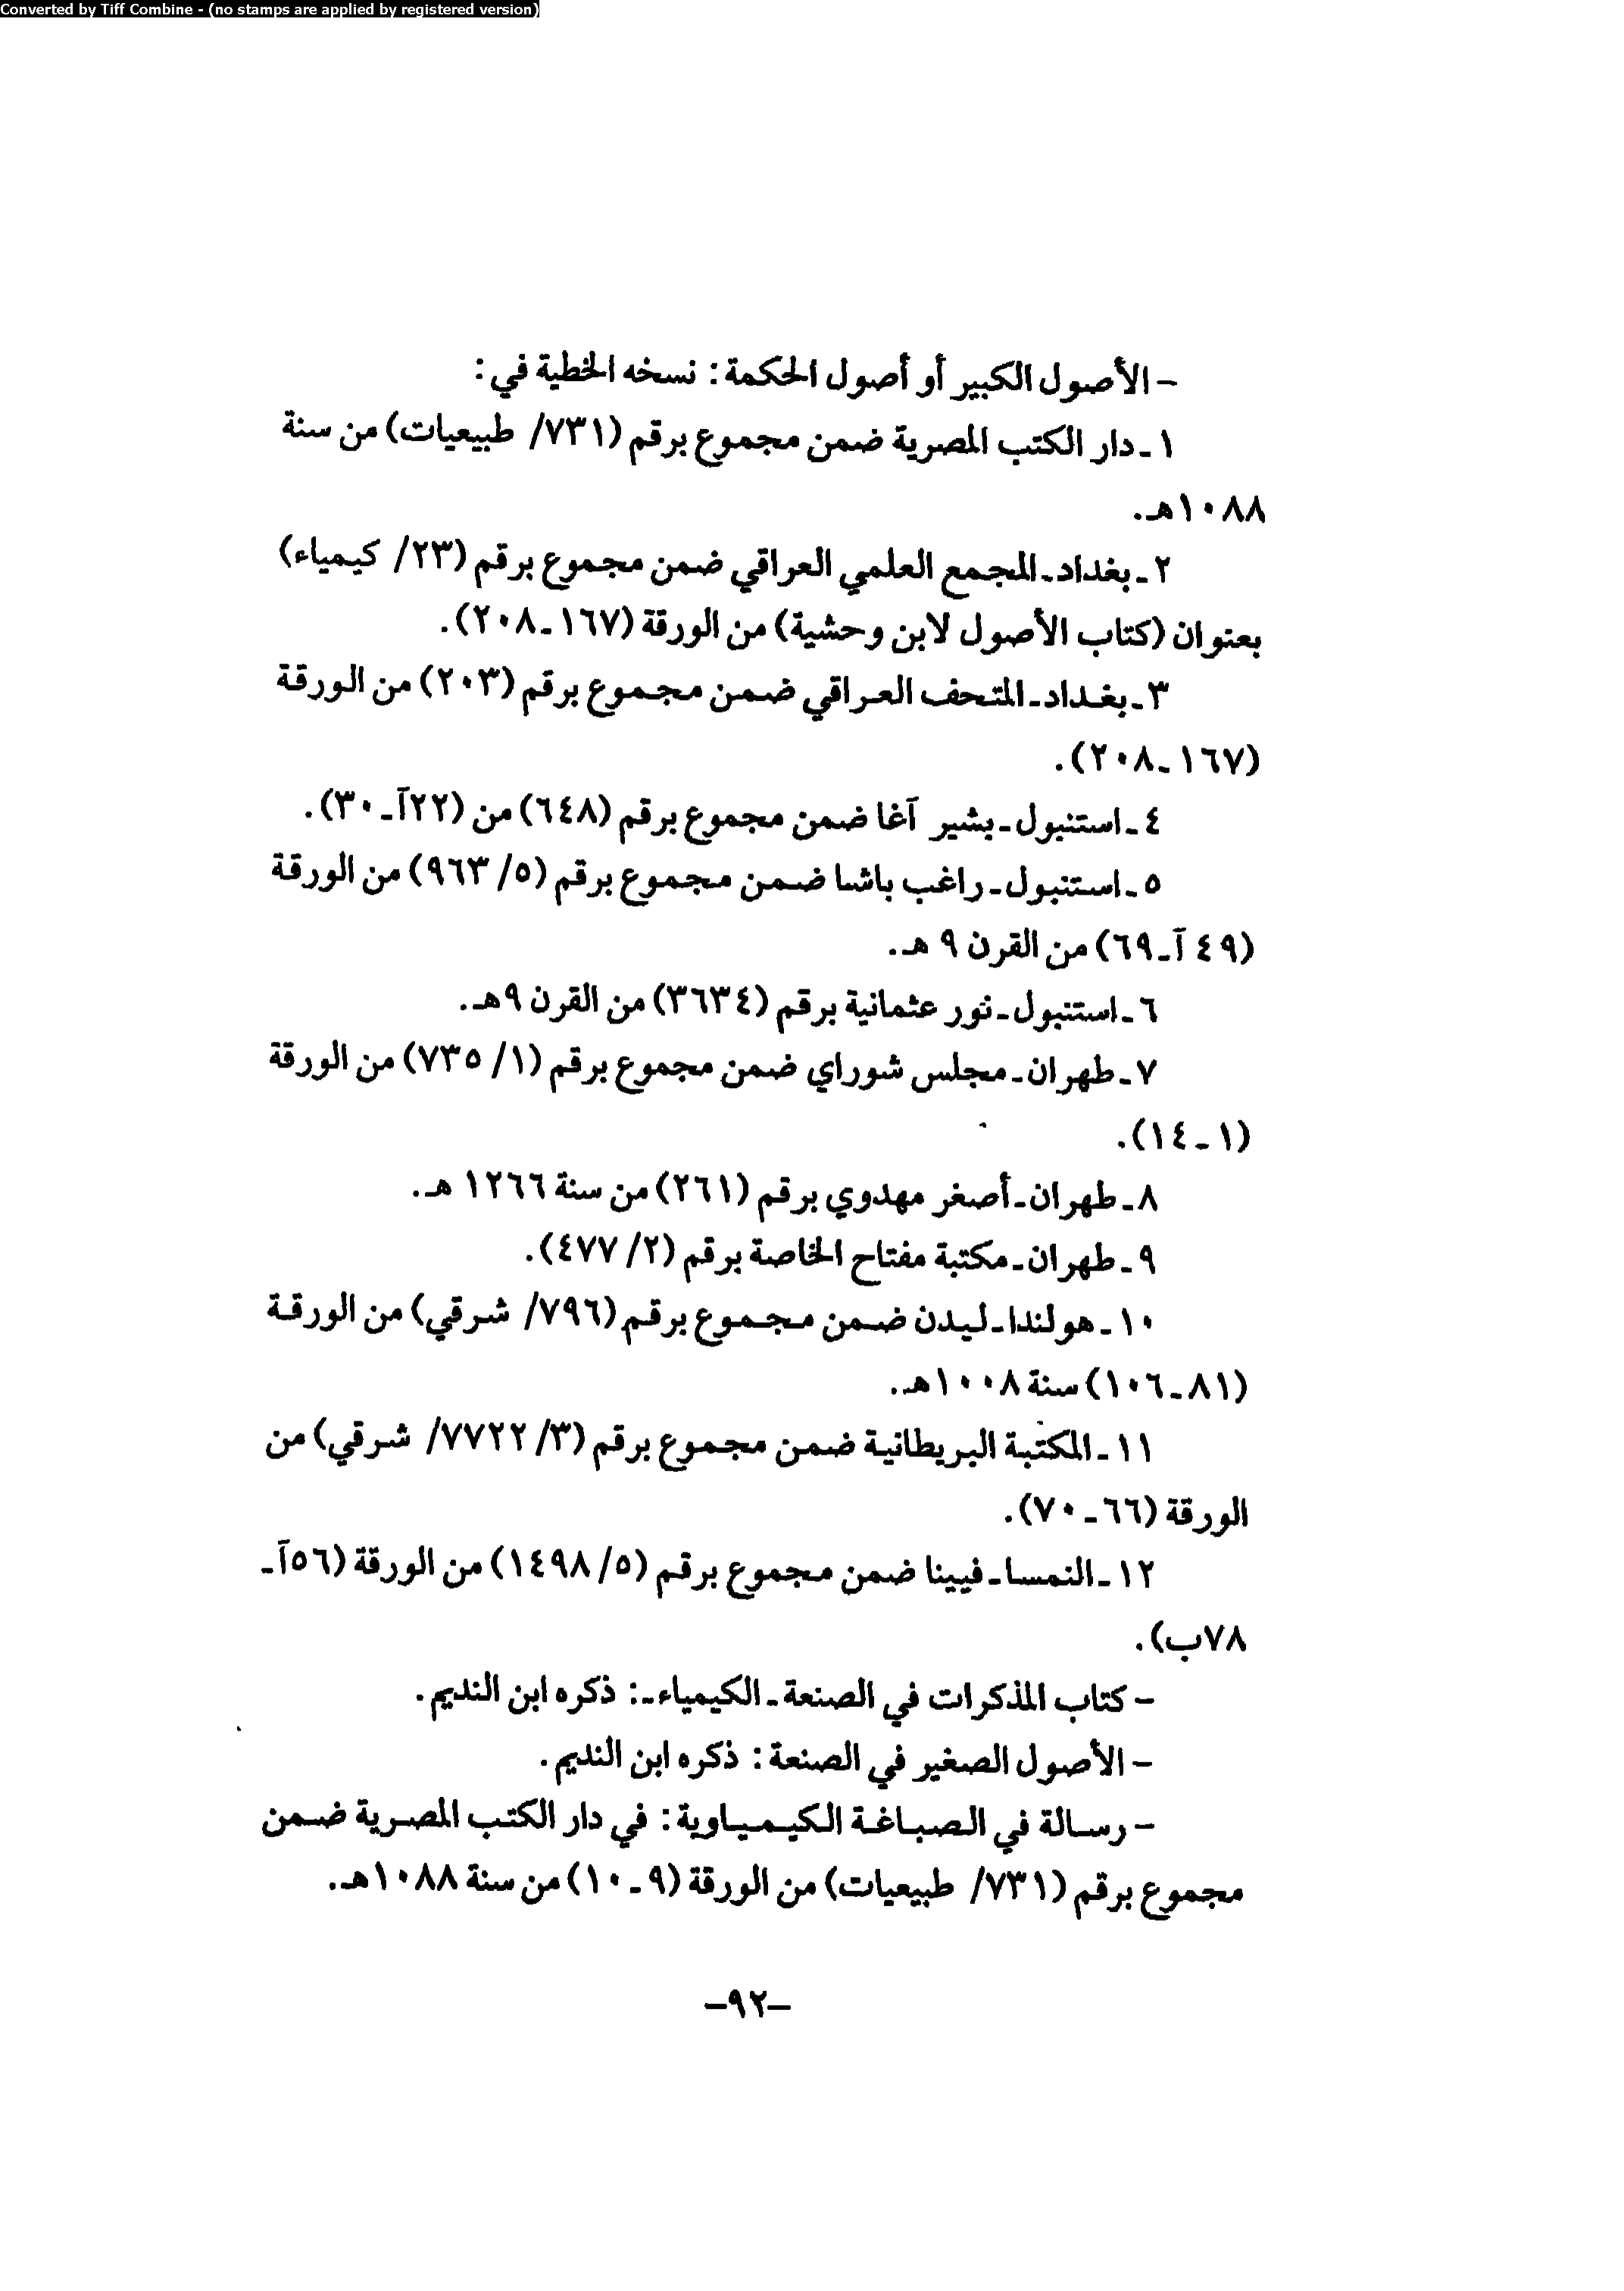 Converted by Tiff Combine - (no stamps are applied by registered version)
– الأصول الكبير أو أصول الحكمة : نسخه الخطية في :
١ ـ دار الكتب المصرية ضمن مجموع برقم (٧٣١/ طبيعيات) من سنة
١٠٨٨هـ.
٢ ـ بغداد ـ المجمع العلمي العراقي ضمن مجموع برقم (٢٣/ كيمياء)
بعنوان (كتاب الأصول لابن وحشية) من الورقة (١٦٧ ـ ٢٠٨).
٣ ـ بغداد ـ المتحف العراقي ضمن مجموع برقم (٢٠٣) من الورقة
(١٦٧ ـ ٢٠٨).
٤ ـ استنبول ـ بشير آغا ضمن مجموع برقم (٦٤٨) من (٢٢آ ـ ٣٠).
٥ ـ استنبول ـ راغب باشا ضمن مجموع برقم (٥/ ٩٦٣) من الورقة
(٤٩ آ ـ ٦٩) من القرن ٩ هـ.
٦ ـ استنبول ـ نور عثمانية برقم (٣٦٣٤) من القرن ٩هـ.
٧ ـ طهران ـ مجلس شوراي ضمن مجموع برقم (١/ ٧٣٥) من الورقة
(١ ـ ١٤).
٨ ـ طهران ـ أصغر مهدوي برقم (٢٦١) من سنة ١٢٦٦ هـ.
٩ ـ طهران ـ مكتبة مفتاح الخاصة برقم (٢/ ٤٧٧).
١٠ ـ هولندا ـ ليدن ضمن مجموع برقم (٧٩٦/ شرقي) من الورقة
(٨١ ـ ١٠٦) سنة ١٠٠٨هـ.
١١ ـ المكتبة البريطانية ضمن مجموع برقم (٣/ ٧٧٢٢/ شرقي) من
الورقة (٦٦ ـ ٧٠).
١٢ ـ النمسا ـ فيينا ضمن مجموع برقم (٥/ ١٤٩٨) من الورقة (٥٦آ ـ
٧٨ب).
– كتاب المذكرات في الصنعة ـ الكيمياء ـ : ذكره ابن النديم.
– الأصول الصغير في الصنعة : ذكره ابن النديم.
– رسالة في الصباغة الكيمياوية : في دار الكتب المصرية ضمن
مجموع برقم (٧٣١/ طبيعيات) من الورقة (٩ ـ ١٠) من سنة ١٠٨٨هـ.
–٩٢–